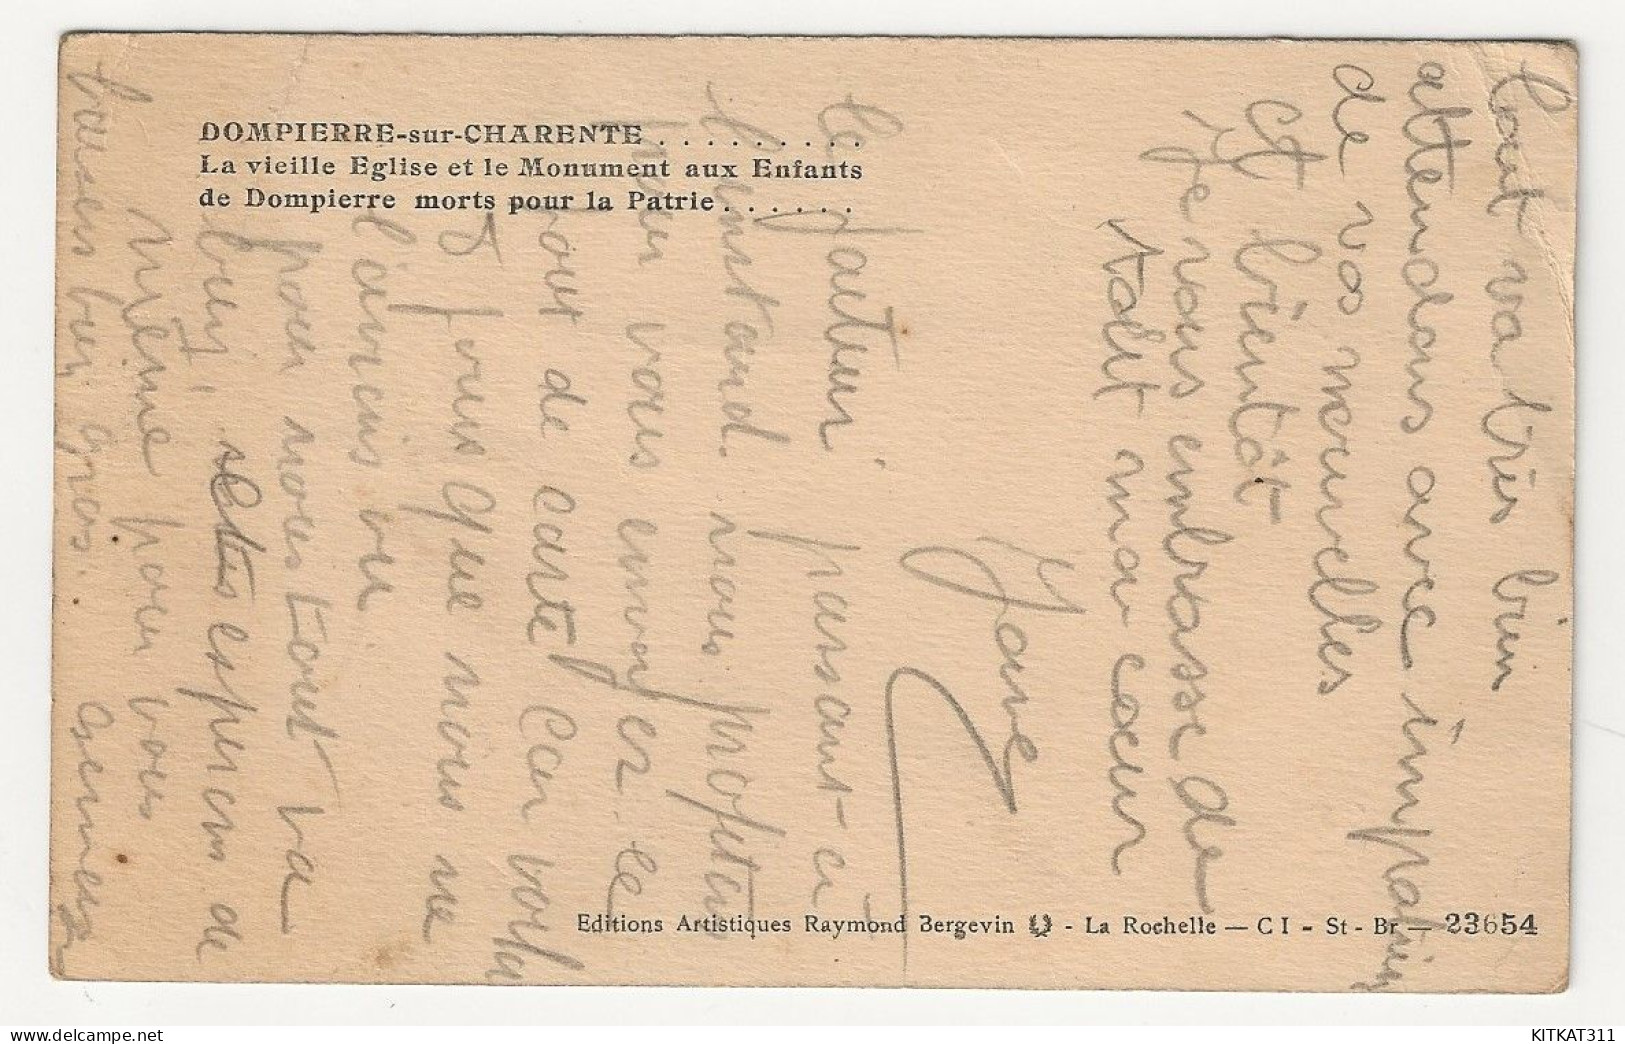 DOMPIERRE-sur-CHARENTE . . . . . . . . .
La vieille Eglise et le Monument aux Enfants
de Dompierre morts pour la Patrie . . . . . .
Tout va très bien
attendons avec impatien
de vos nouvelles
et bientôt
Je vous embrasse de
tout mon coeur
Jane
le facteur passant ci
l'instant nous profitons
pour vous envoyer le
tout de carte Car voila
5 jours que nous ne
l'avions vu
pour nous tout va
bien, espérons de
même pour vous
baisers bien gros.
Editions Artistiques Raymond Bergevin - La Rochelle — C I - St - Br — 23654
KITKAT311